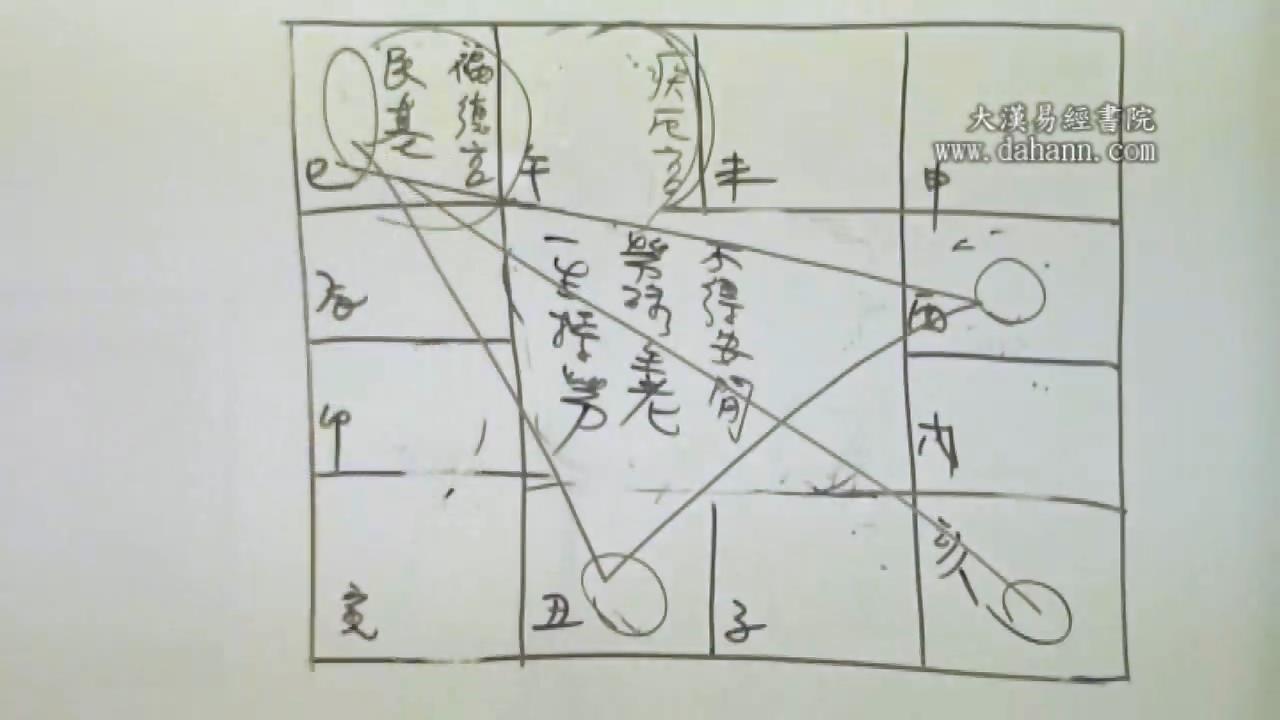 大漢易經書院
www.dahann.com
福德宮
民基
疾厄宮
巳
午
未
申
辰
酉
卯
戌
寅
丑
子
亥
不得安閒
勞碌至老
一生操勞